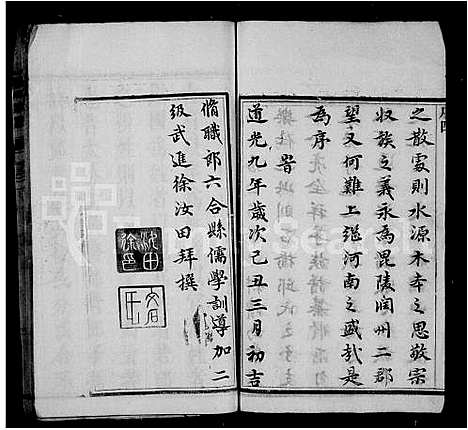 之散處則水源木本之思敬宗
收族之義永為毘陵潤州二郡
望又何難上繼河南之盛哉是
為序
旹
道光九年歲次己丑三月初吉
脩職郎六合縣儒學訓導加二
級武進徐汝田拜撰